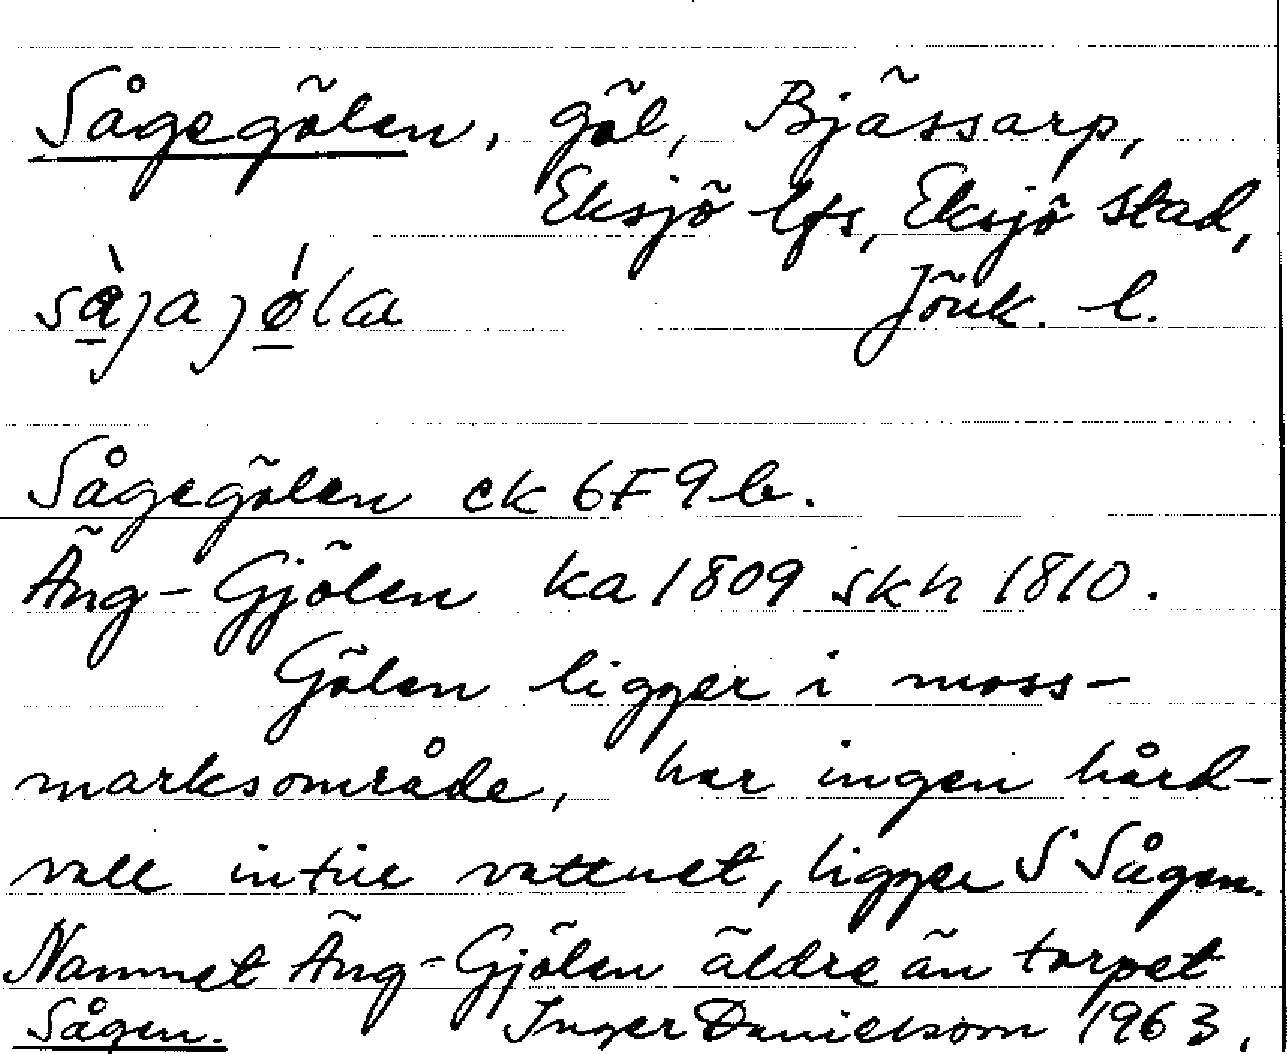 Sågegölen, göl, Bjässarp,
Eksjö lfs, Eksjö stad,
Jönk. l.
Sågegölen ek 6F9b.
Äng-Gjölen ka 1809 skh 1810.
Gölen ligger i moss-
marksområde, har ingen hård-
vall intill vattnet, ligger S Sågen.
Namnet Äng-Gjölen äldre än torpet
Sågen. Inger Danielsson 1963.